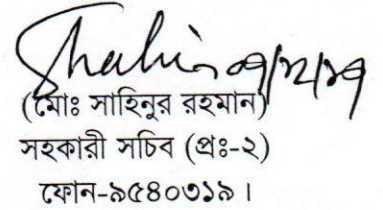 (মোঃ সাহিনুর রহমান)
সহকারী সচিব (প্রঃ-২)
ফোন-৯৫৪০৩১৯।